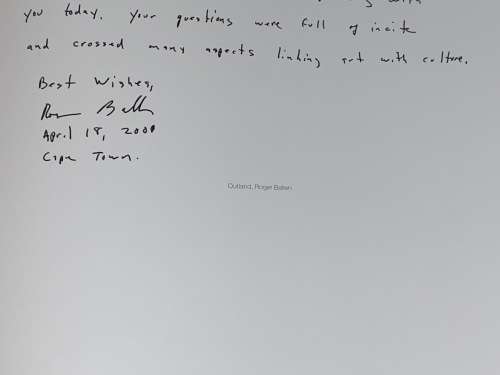 with
you today. Your questions were full of incite
and crossed many aspects linking art with culture.
Best Wishes,
April 18, 2001
Cape Town.
Outland, Roger Ballen